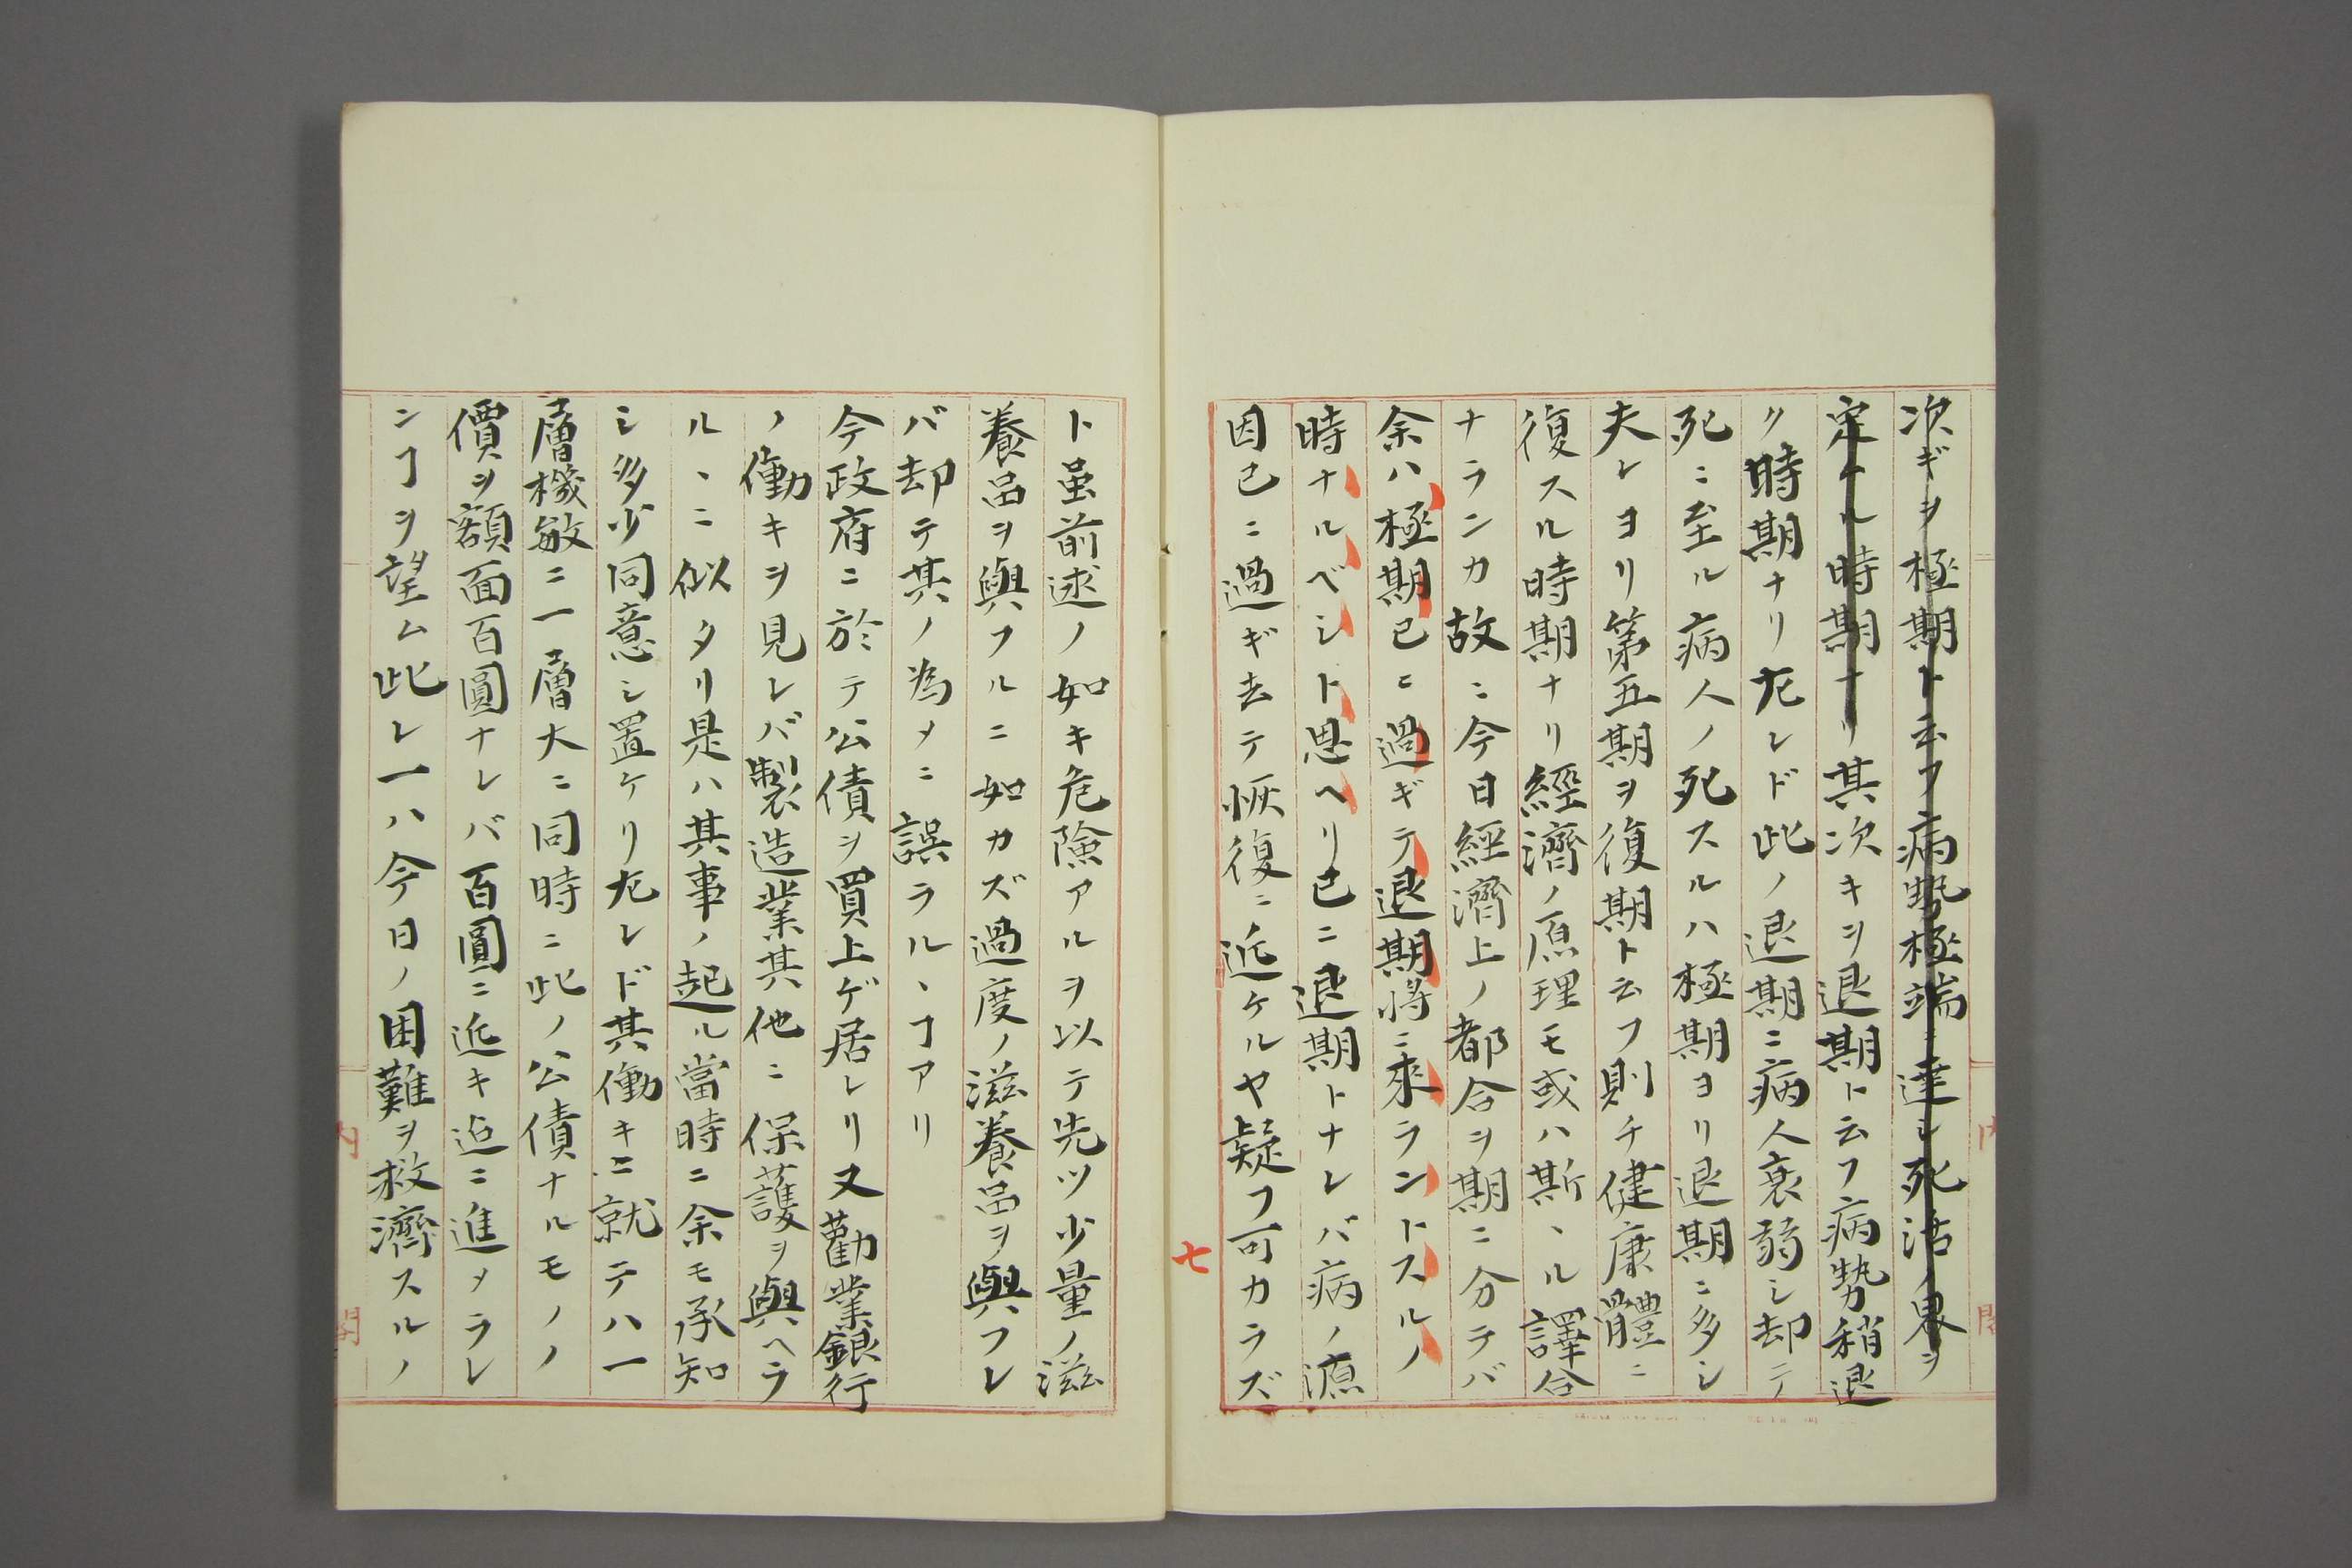 次ギヲ極期ト云フ病勢極端ニ達シ死活ノ界ヲ
定ケル時期ナリ其次キヲ退期ト云フ病勢稍退
ク時期ナリ尤レド此ノ退期ニ病人衰弱シ却テ
死ニ至ル病人ノ死スルハ極期ヨリ退期ニ多シ
夫レヨリ第五期ヲ復期ト云フ則チ健康體ニ
復スル時期ナリ經濟ノ原理モ或ハ斯ヽル譯合
ナランカ故ニ今日經濟上ノ都合ヲ期ニ分テバ
余ハ極期已ニ過ギテ退期將ニ來ラントスルノ
時ナルベシト思ヘリ已ニ退期トナレバ病ノ源
因已ニ過ギ去テ恢復ニ近ケルヤ疑フ可カラズ
七
ト虽前述ノ如キ危險アルヲ以テ先ツ少量ノ滋
養品ヲ與フルニ如カズ過度ノ滋養品ヲ與フレ
バ却テ其ノ為メニ誤ラルヽヿアリ
今政府ニ於テ公債ヲ買上ゲ居レリ又勸業銀行
ノ働キヲ見レバ製造業其他ニ保護ヲ與ヘラ
ルヽニ似タリ是ハ其事ノ起ル當時ニ余モ承知
シ多少同意シ置ケリ尤レド其働キニ就テハ一
層機敏ニ一層大ニ同時ニ此ノ公債ナルモノノ
價ヲ額面百圓ナレバ百圓ニ近キ迠ニ進メラレ
ンヿヲ望ム此レ一ハ今日ノ困難ヲ救濟スルノ
内
閣